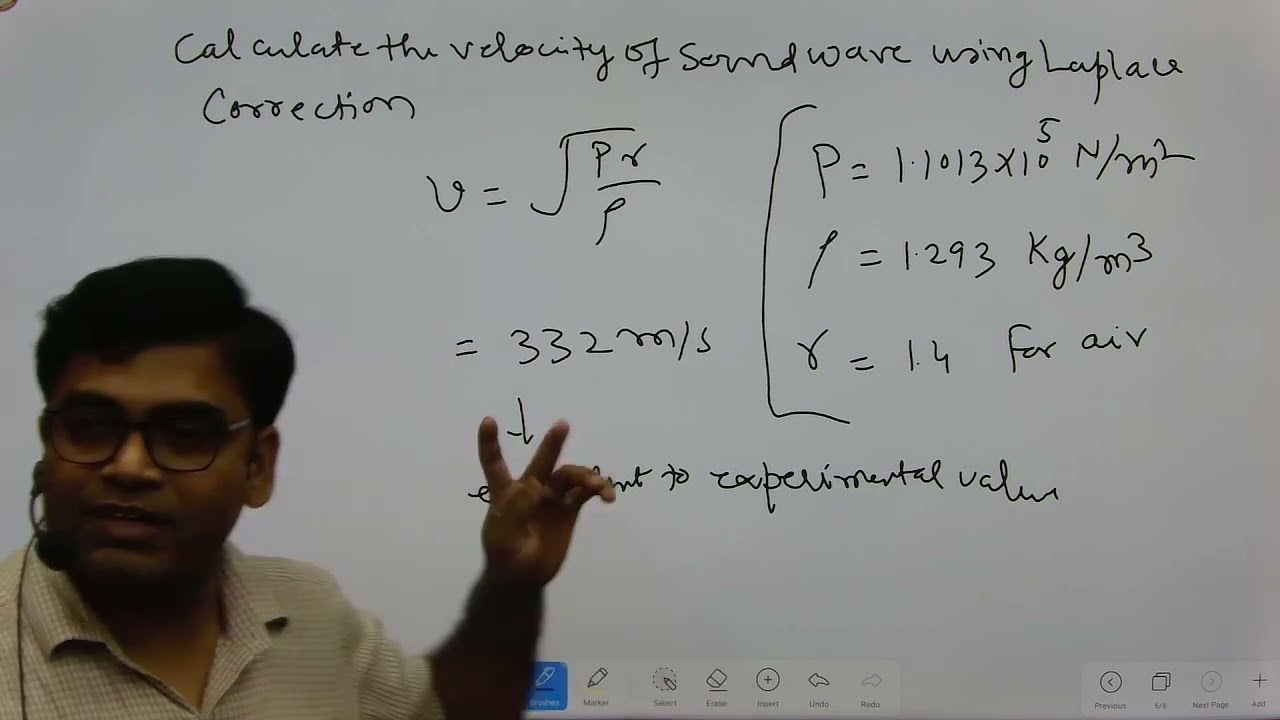 Calculate the velocity of Sound wave using Laplace
Correction
v = √(Pγ/ρ)
= 332 m/s
↓
to experimental value
P = 1.1013×10⁵ N/m²
ρ = 1.293 Kg/m³
γ = 1.4 for air
Brushes Marker Select Erase Insert Undo Redo
Previous 6/6 Next Page Add